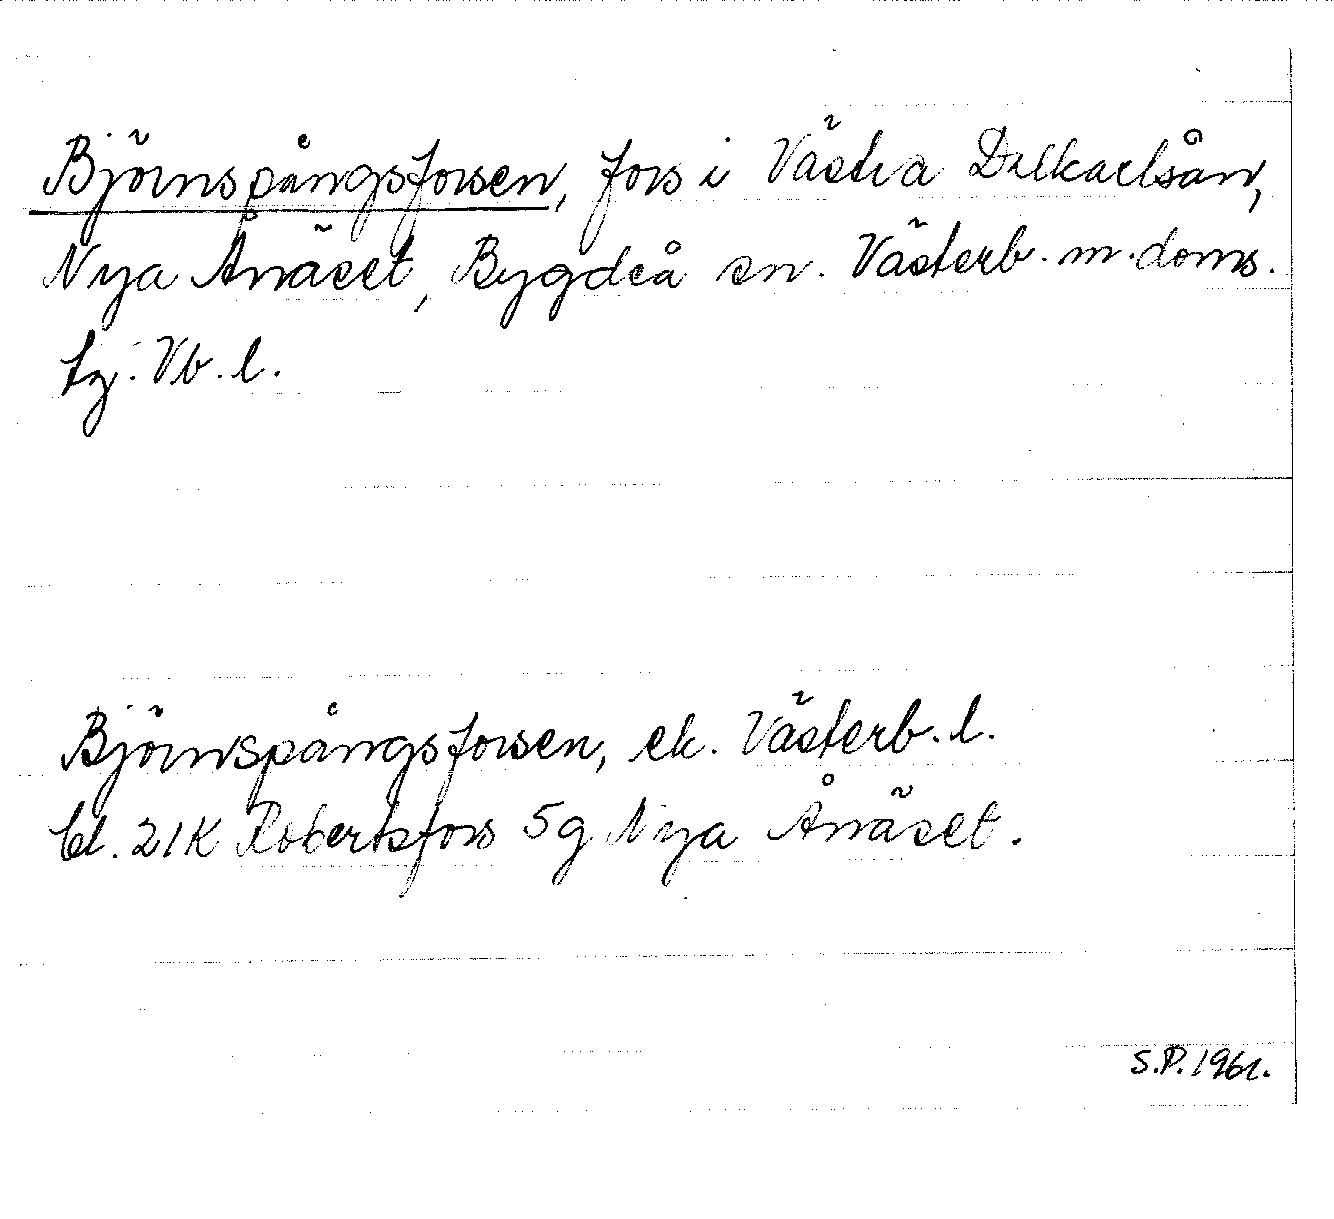 Björnspångsforsen, fors i Västra Dalkarlsån,
Nya Ånäset, Bygdeå sn. Västerb. m. doms.
tg. Vb. l.
Björnspångsforsen, ek. Västerb. l.
bl. 21K Robertsfors 5g Nya Ånäset.
S.P. 1961.